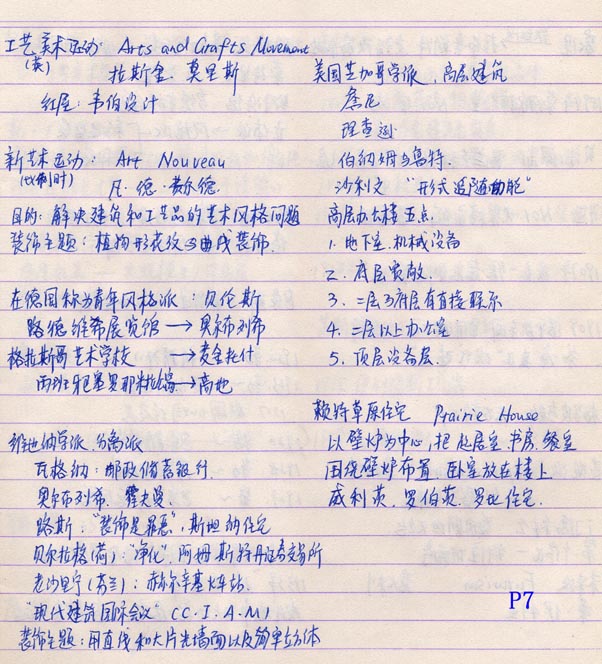 工艺美术运动: Arts and Crafts Movement
(英)
拉斯金. 莫里斯
红屋: 韦伯设计
新艺术运动: Art Nouveau
(比利时)
凡·德·费尔德.
目的: 解决建筑和工艺品的艺术风格问题
装饰主题: 植物形花纹与曲线装饰.
在德国称为青年风格派: 贝伦斯
路德维希展览馆 → 奥尔布列希
格拉斯哥艺术学校 → 麦金托什
西班牙 → 高地
维也纳学派. 分离派
瓦格纳: 邮政储蓄银行.
奥尔布列希. 霍夫曼.
路斯: "装饰是罪恶", 斯坦纳住宅
贝尔拉格(荷): "净化", 阿姆斯特丹证券交易所
老沙里宁(芬兰): 赫尔辛基火车站.
现代建筑国际会议 (C·I·A·M)
装饰主题: 用直线和大片光墙面以及简单立方体
美国芝加哥学派. 高层建筑
詹尼
理查逊
伯纳姆与鲁特.
沙利文 "形式追随功能"
高层办公楼五点.
1. 地下室. 机械设备
2. 底层宽敞
3. 二层与底层有直接联系
4. 二层以上办公室
5. 顶层设备层.
赖特草原住宅 Prairie House
以壁炉为中心, 把起居室. 书房. 餐室
围绕壁炉布置 卧室放在楼上
威利茨. 罗伯茨. 罗比住宅.
P7